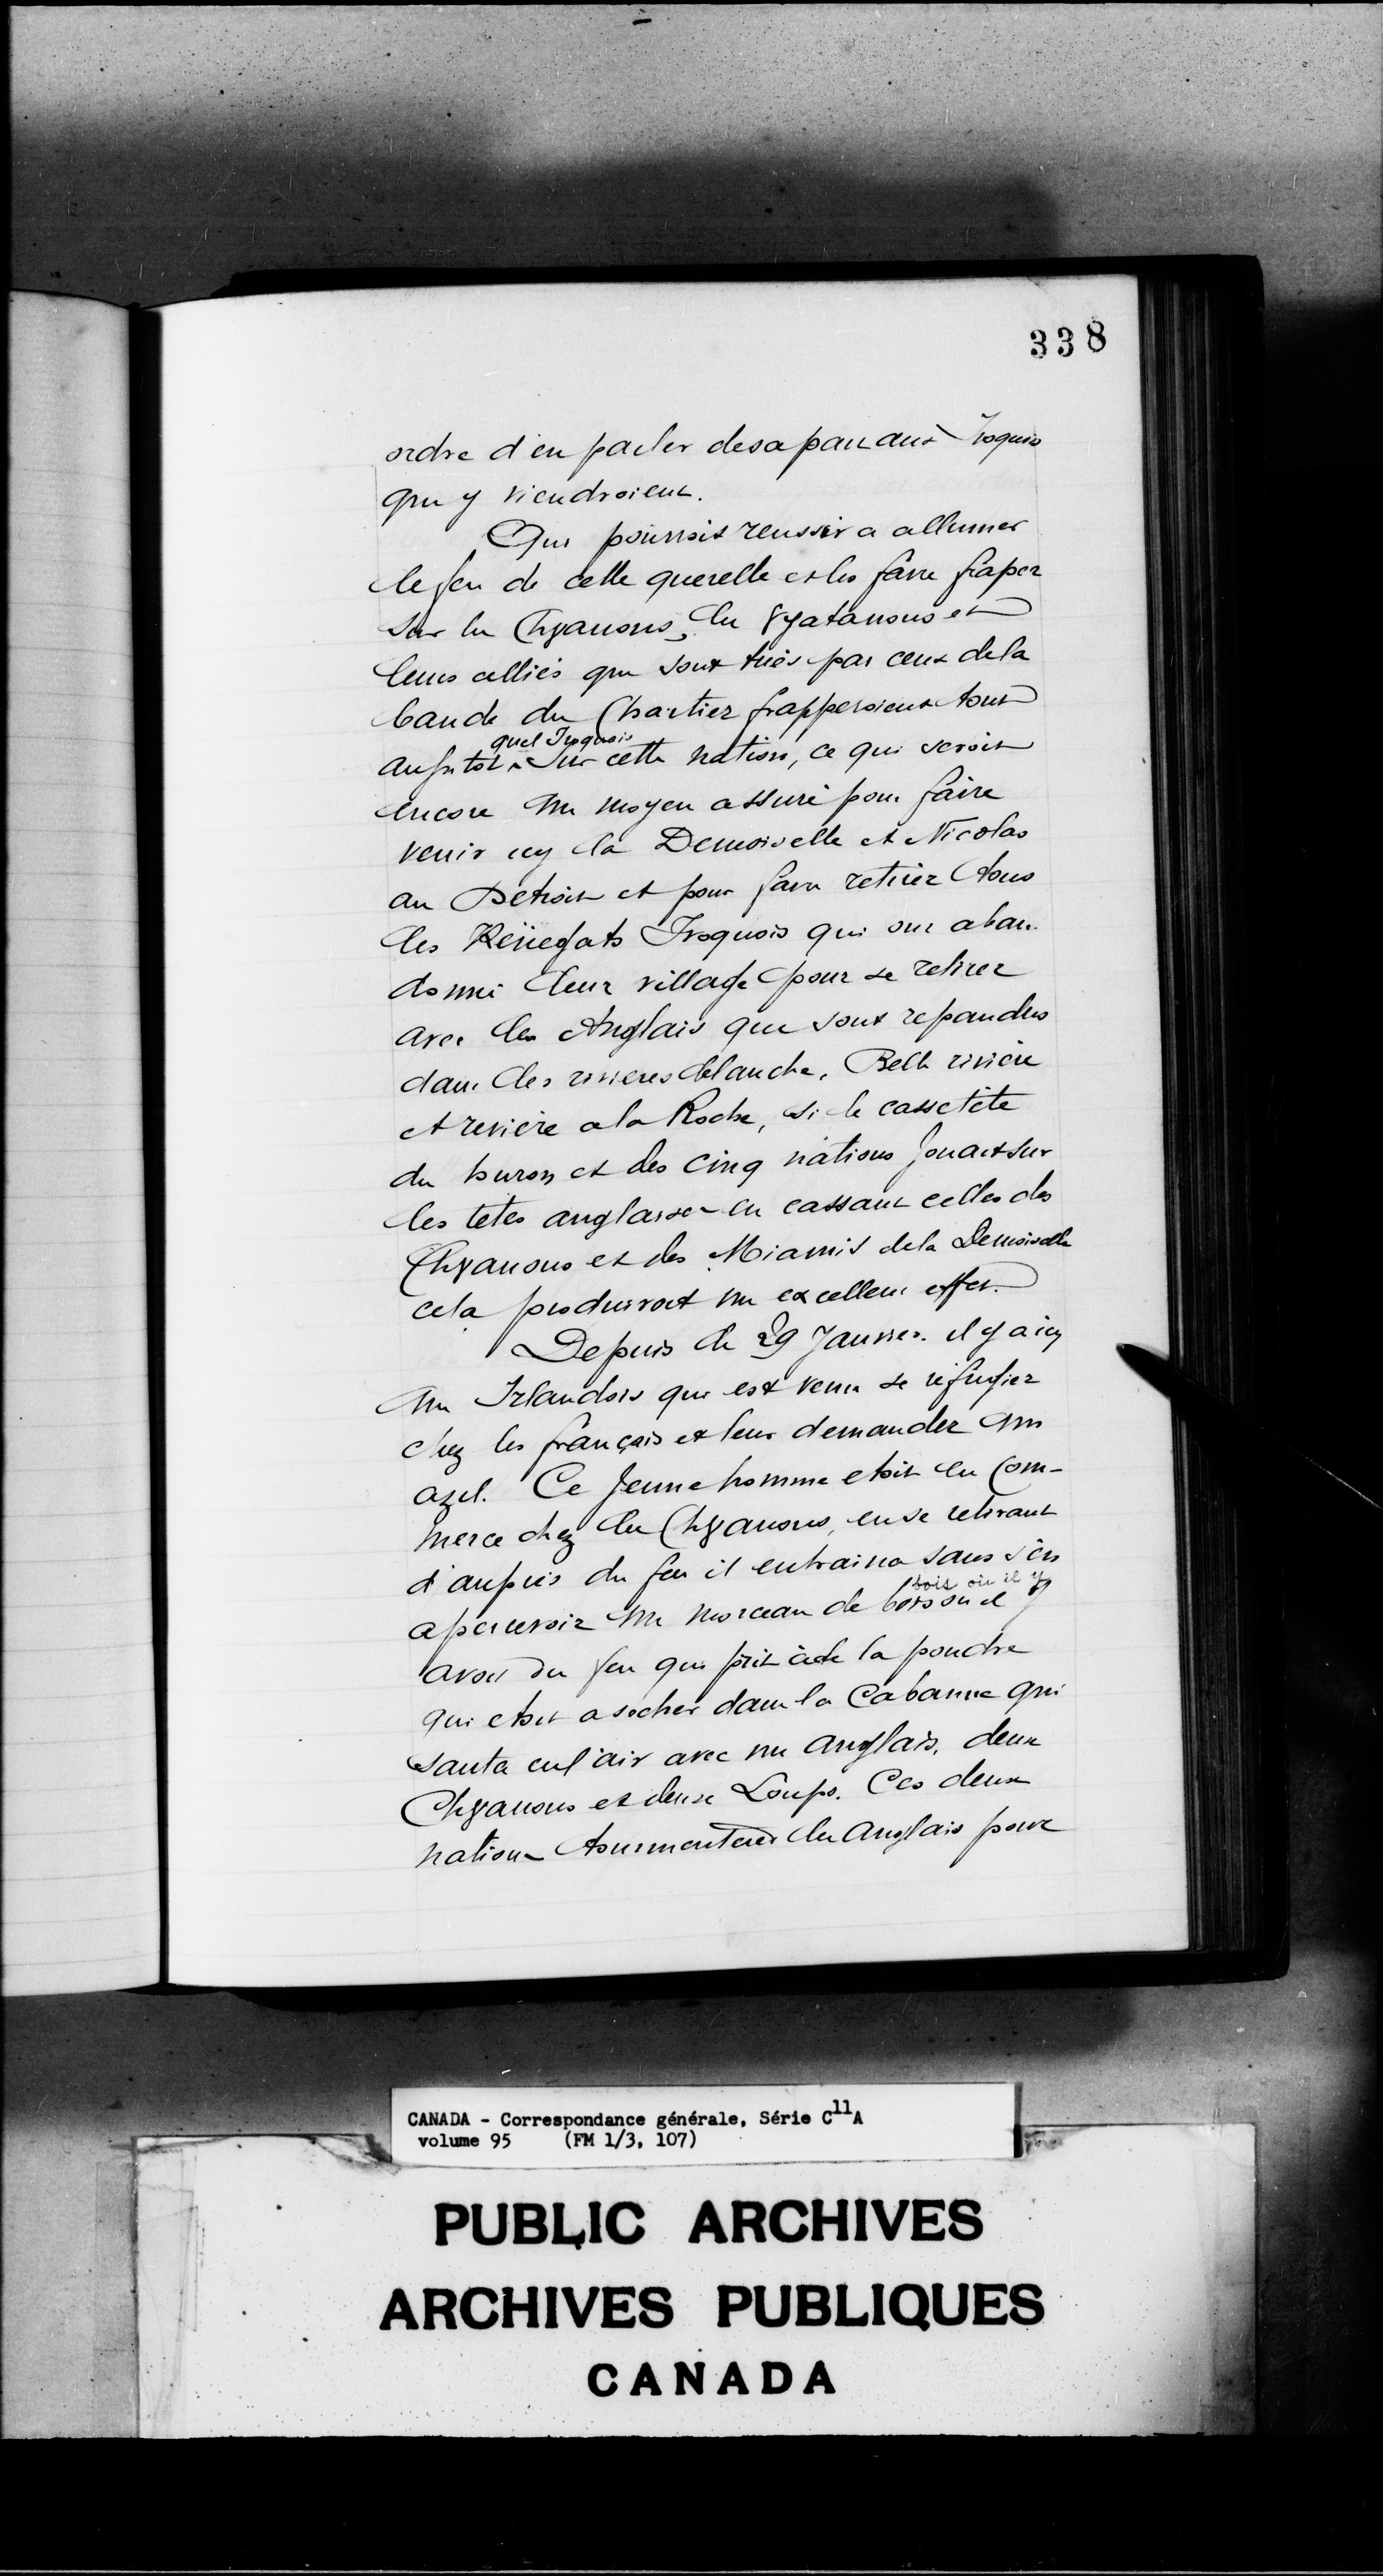 338
ordre d'en parler desapart aux Iroquois
qui y viendroient.
Qui pourroit reussir a allumer
le feu de cette querelle et les faire fraper
sur les Ch8anons, les 8yatanons et
leurs alliés qui sont tués par ceux dela
bande du Chartier frapperoient tout
quel Iroquois
aussitot ^ sur cette nation, ce qui seroit
encore un moyen assuré pour faire
venir icy la Demoiselle et Nicolas
au Detroit et pour faire retirer tous
les Renegats Iroquois qui ont aban-
donné leur village pour se retirer
avec les Anglais que sont repandus
dans les rivieres blanche, Belle rivière
et rivière a la Roche, si le cassetête
du huron et des cinq nations jouait sur
les têtes anglaises en cassant celles des
Ch8anons et des Miamis dela Demoiselle
cela produiroit un excellent effet.
Depuis le 29 Janvier. il y a icy
un Irlandois qui est venu se réfugier
chez les français et leur demander un
azil. Ce jeune homme etoit en Com-
merce chez les Ch8anons, en se retirant
d'auprès du feu il entraina sans s'en
bois où il y
apercevoir un morceau de bois ou il y
avoit du feu qui prit à de la poudre
qui etoit a secher dans la Cabanne qui
sauta en l'air avec un anglais, deux
Ch8anons et deux Loups. Ces deux
nations tourmenterent les Anglais pour
CANADA - Correspondance générale, Série C11A
volume 95 (FM 1/3, 107)
PUBLIC ARCHIVES
ARCHIVES PUBLIQUES
CANADA